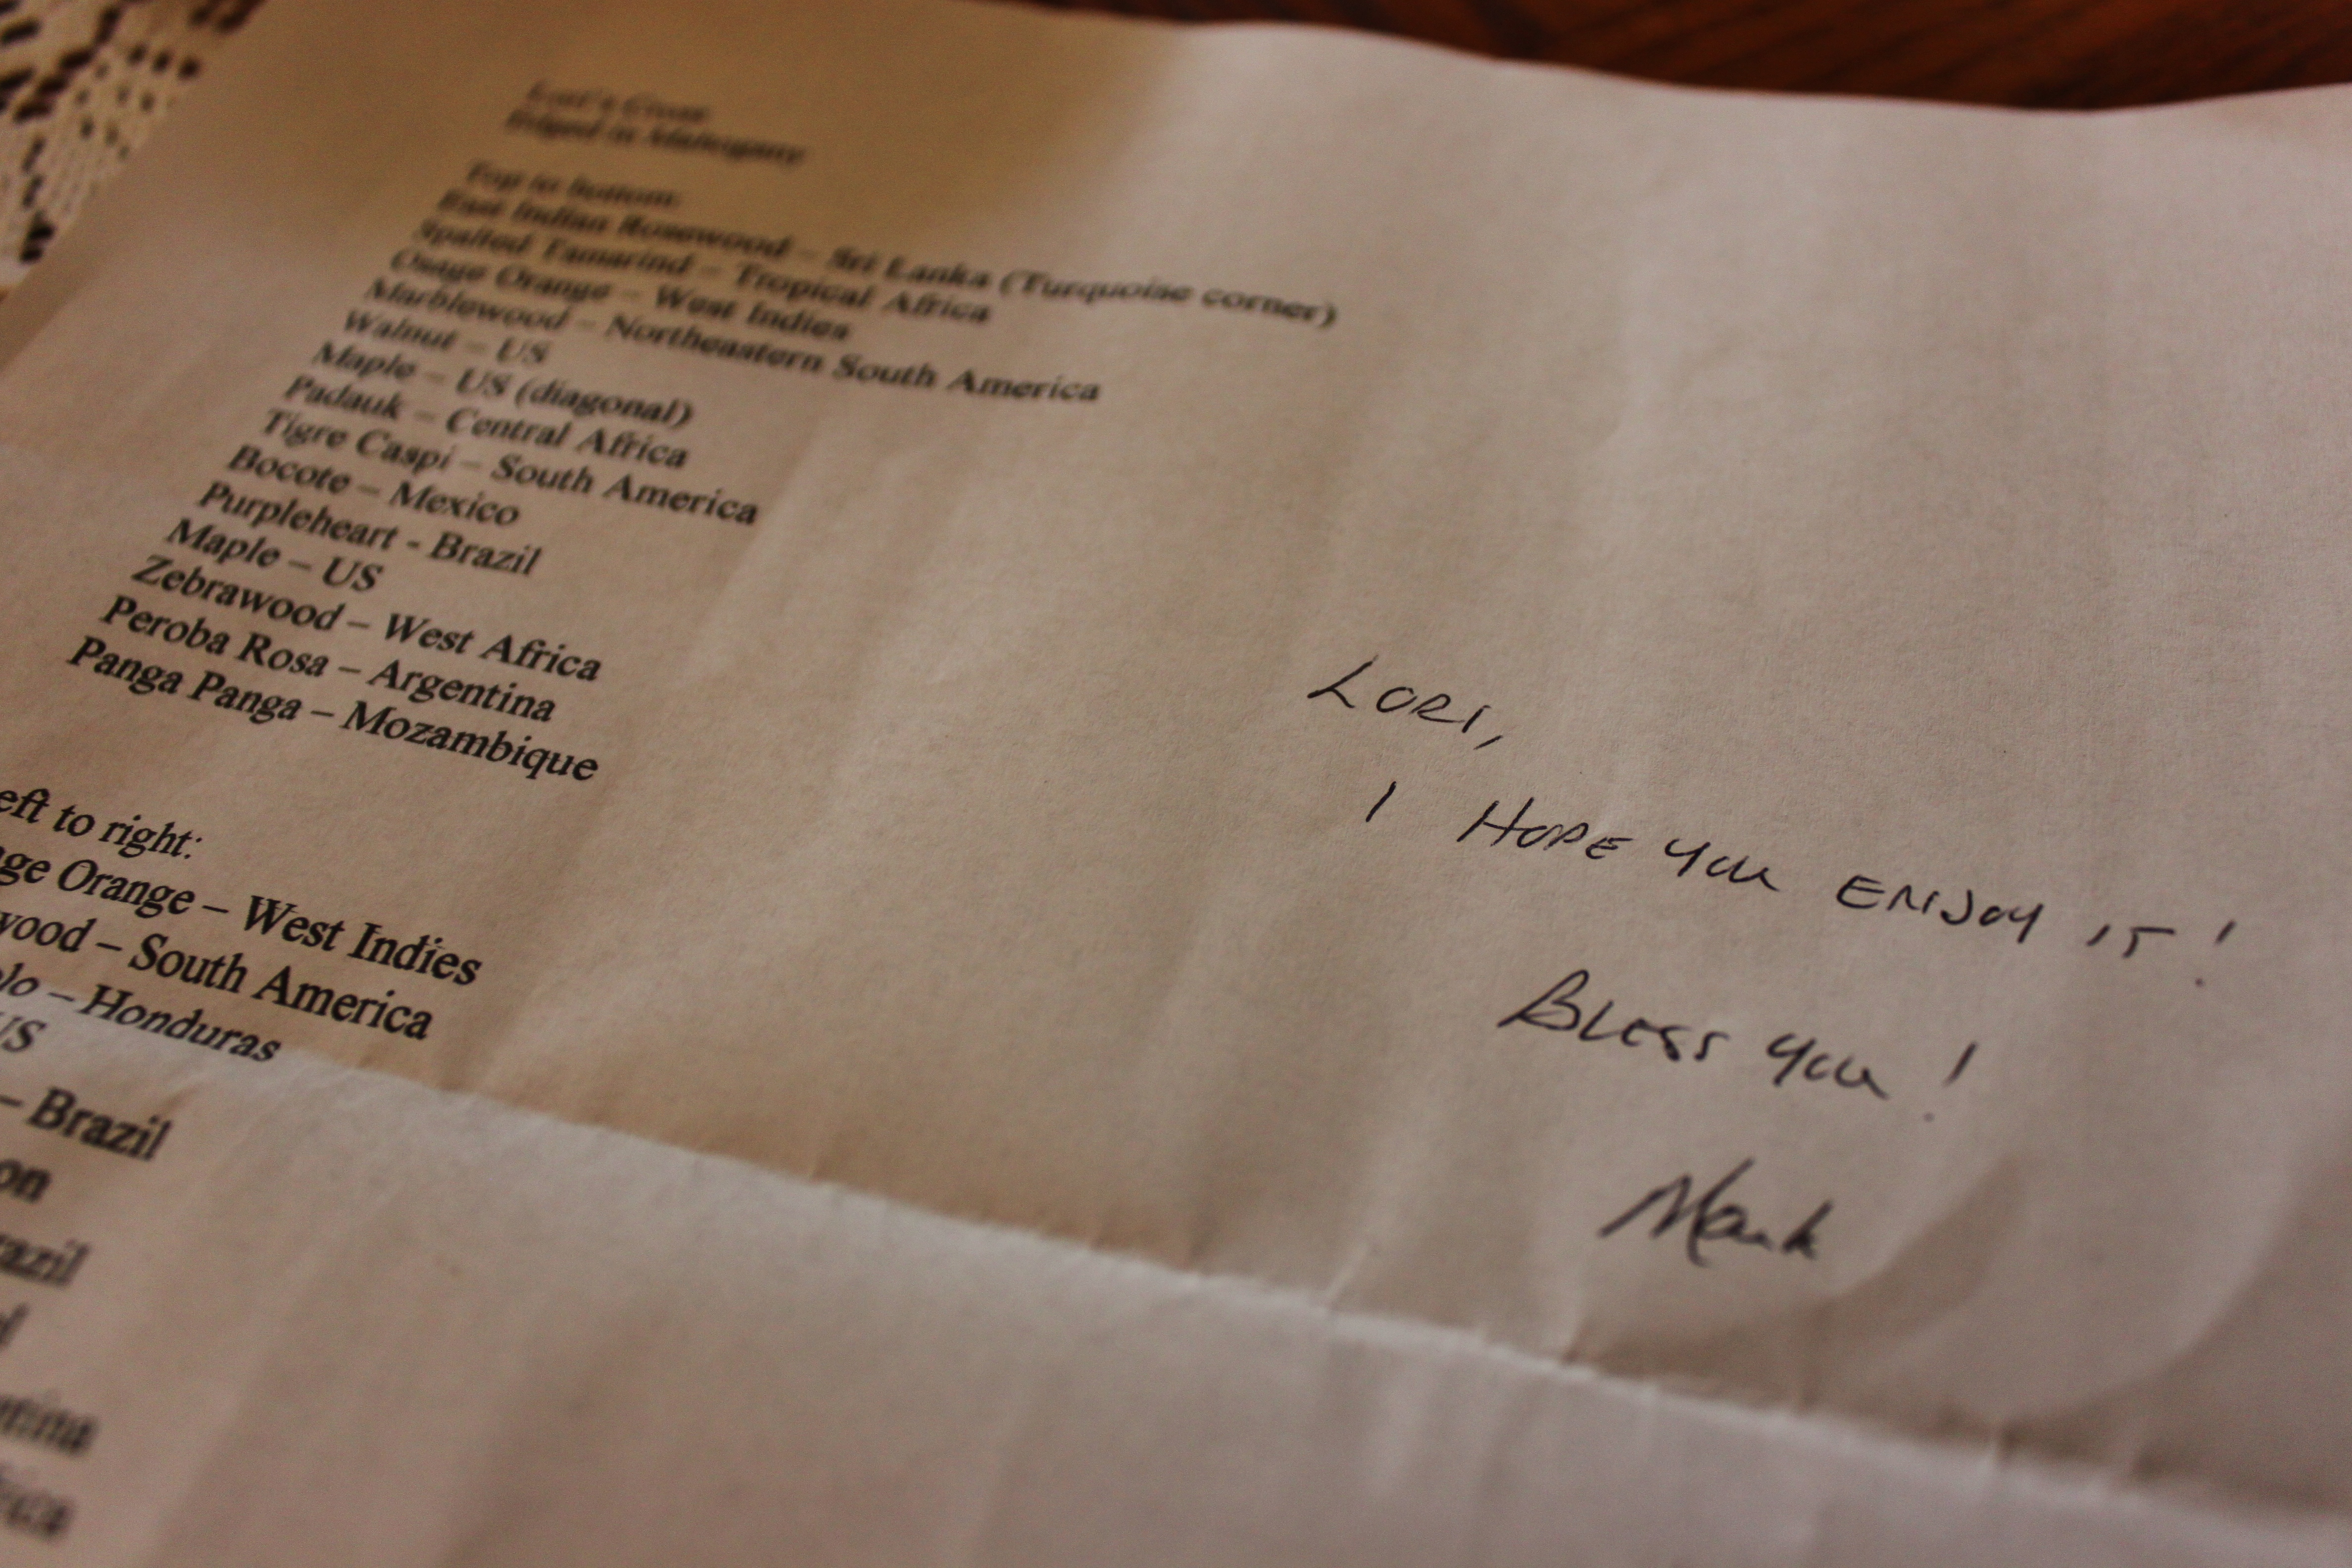 Lori's Cross
Edged in Mahogany
Top to bottom:
East Indian Rosewood – Sri Lanka (Turquoise corner)
Spalted Tamarind – Tropical Africa
Osage Orange – West Indies
Marblewood – Northeastern South America
Walnut – US
Maple – US (diagonal)
Padauk – Central Africa
Tigre Caspi – South America
Bocote – Mexico
Purpleheart - Brazil
Maple – US
Zebrawood – West Africa
Peroba Rosa – Argentina
Panga Panga – Mozambique
eft to right:
ge Orange – West Indies
wood – South America
olo – Honduras
US
– Brazil
on
razil
ntina
LORI,
I HOPE YOU ENJOY IT!
BLESS YOU!
Mark